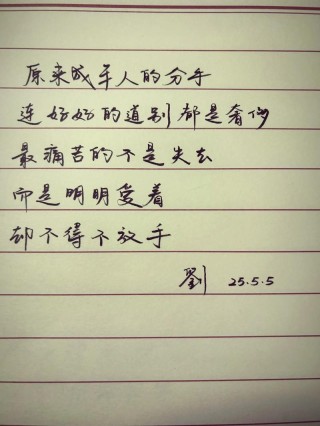 原来成年人的分手
连好好的道别都是奢侈
最痛苦的不是失去
而是明明爱着
却不得不放手
劉 25.5.5